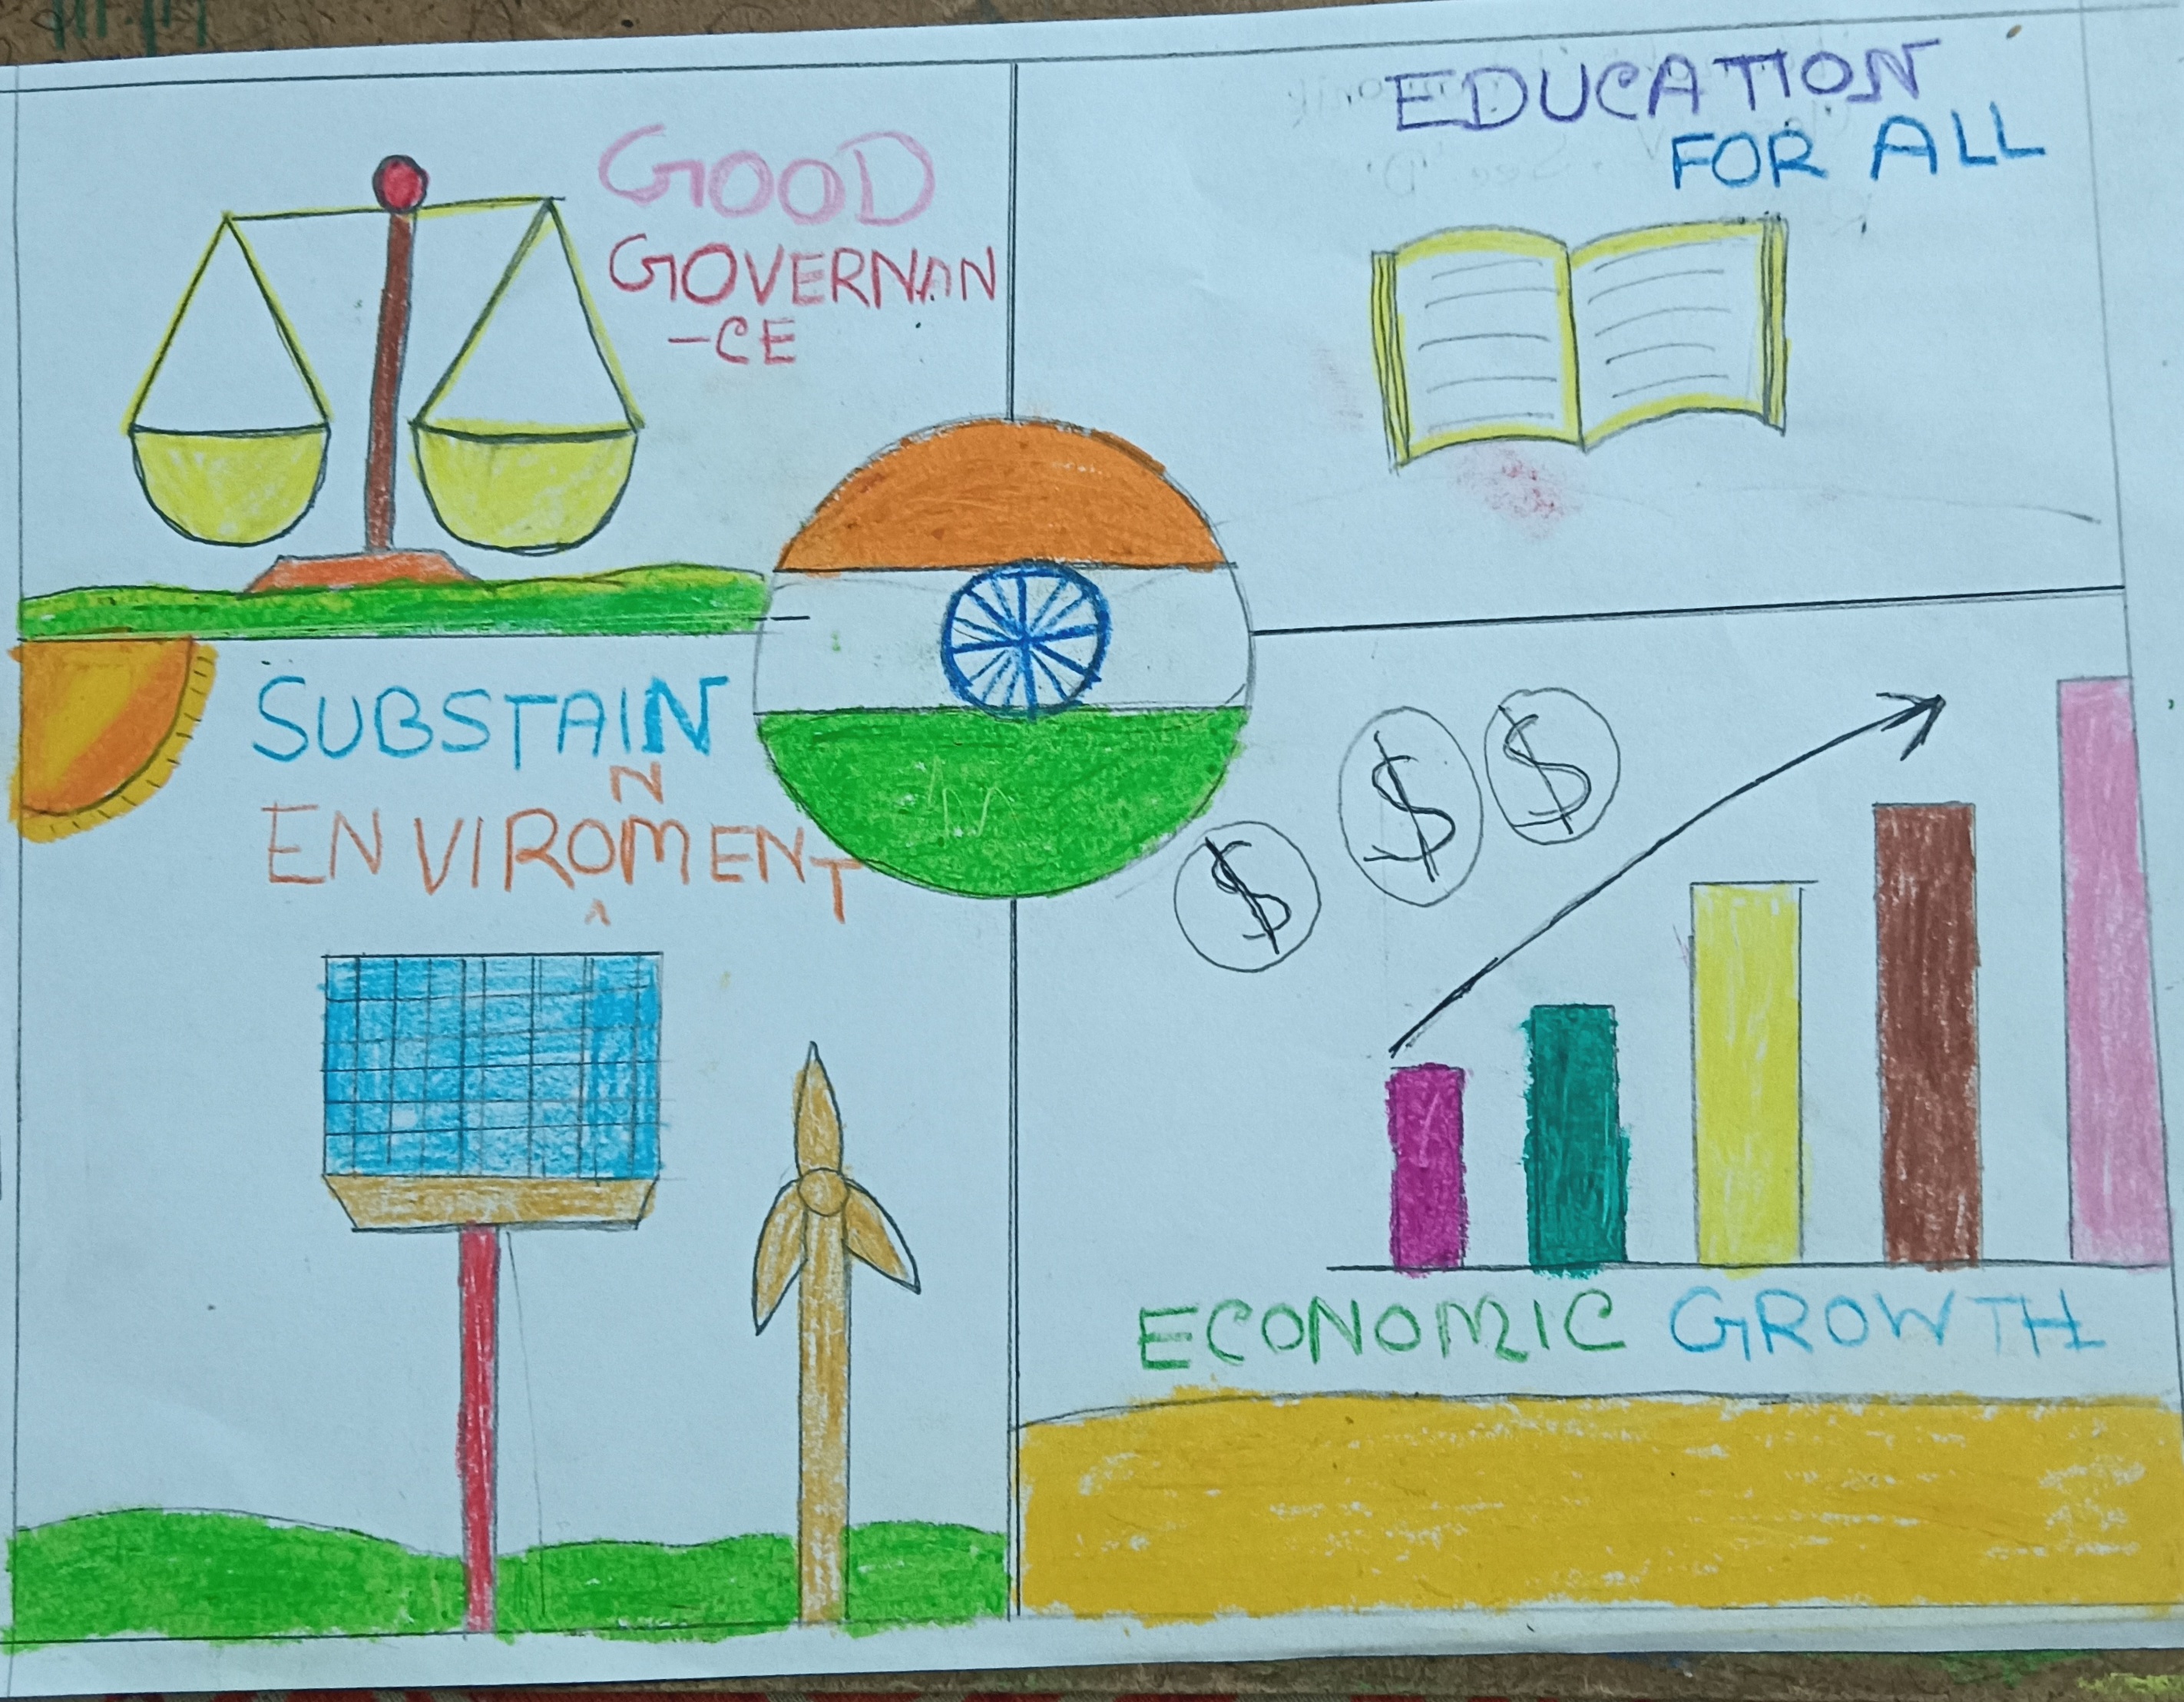 GOOD
GOVERNAN
-CE
EDUCATION
FOR ALL
SUBSTAIN
N
ENVIROMENT
^
$ $ $
ECONOMIC GROWTH